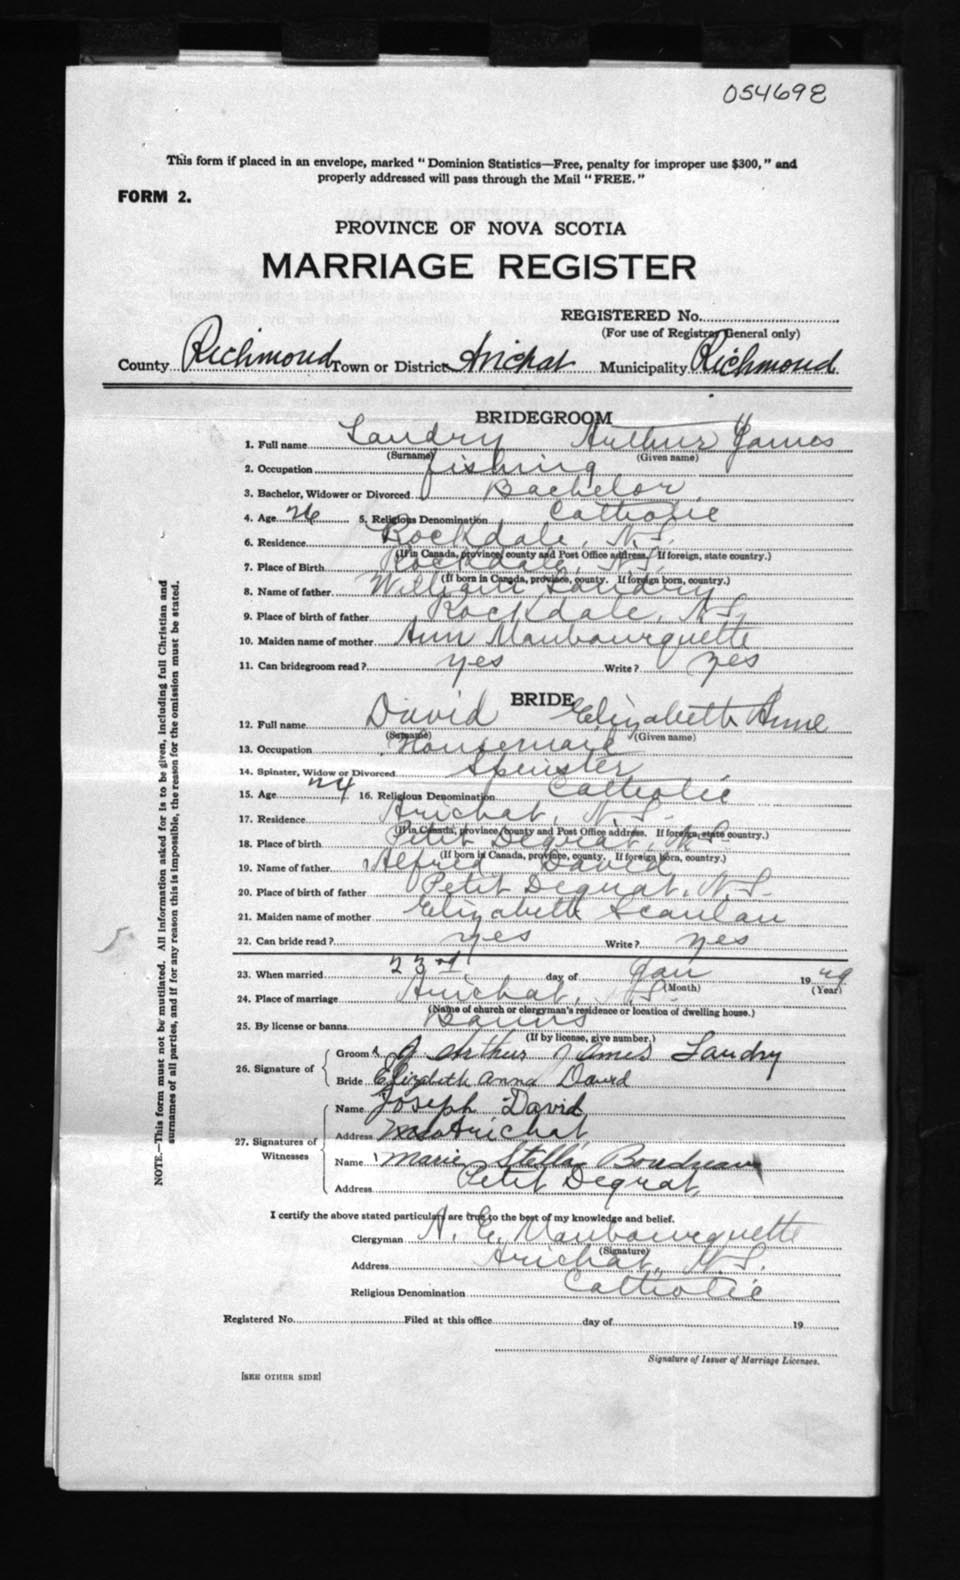 054698
This form if placed in an envelope, marked "Dominion Statistics—Free, penalty for improper use $300," and
properly addressed will pass through the Mail "FREE."
FORM 2.
PROVINCE OF NOVA SCOTIA
MARRIAGE REGISTER
REGISTERED No.
(For use of Registrar General only)
County Richmond Town or District Arichat Municipality Richmond
BRIDEGROOM
1. Full name Landry Arthur James
(Surname) (Given name)
2. Occupation fishing
3. Bachelor, Widower or Divorced Bachelor
4. Age 26 5. Religious Denomination Catholic
6. Residence Rockdale, N.S.
(If in Canada, province, county and Post Office address. If foreign, state country.)
7. Place of Birth Rockdale, N.S.
(If born in Canada, province, county. If foreign born, country.)
8. Name of father William Landry
9. Place of birth of father Rockdale, N.S.
10. Maiden name of mother Ann Maubourquette
11. Can bridegroom read? yes Write? yes
BRIDE
12. Full name David Elizabeth Anne
(Surname) (Given name)
13. Occupation Housemaid
14. Spinster, Widow or Divorced Spinster
15. Age 24 16. Religious Denomination Catholic
17. Residence Arichat, N.S.
(If in Canada, province, county and Post Office address. If foreign, state country.)
18. Place of birth Petit Degrat, N.S.
(If born in Canada, province, county. If foreign born, country.)
19. Name of father Alfred David
20. Place of birth of father Petit Degrat, N.S.
21. Maiden name of mother Elizabeth Scanlan
22. Can bride read? yes Write? yes
23. When married 23rd day of Jan 1949
(Month) (Year)
24. Place of marriage Arichat, N.S.
(Name of church or clergyman's residence or location of dwelling house.)
25. By license or banns Banns
(If by license, give number.)
26. Signature of Groom Arthur James Landry
Bride Elizabeth Anna David
27. Signatures of Witnesses
Name Joseph David
Address Arichat
Name Marie Stella Boudreau
Address Petit Degrat
I certify the above stated particulars are true to the best of my knowledge and belief.
Clergyman A. E. Maubourquette
(Signature)
Address Arichat, N.S.
Religious Denomination Catholic
Registered No. Filed at this office day of 19
Signature of Issuer of Marriage Licenses.
[SEE OTHER SIDE]
NOTE.—This form must not be mutilated. All information asked for is to be given, including full Christian and
surnames of all parties, and if for any reason this is impossible, the reason for the omission must be stated.